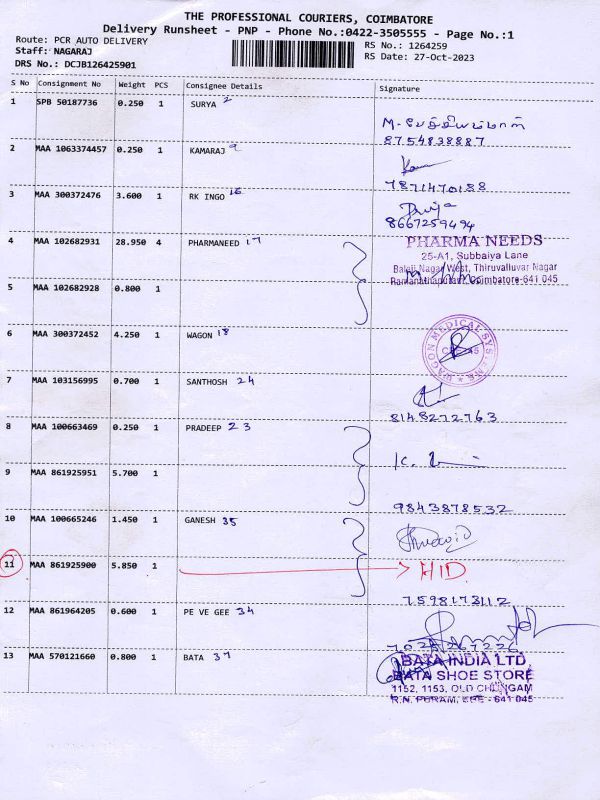 THE PROFESSIONAL COURIERS, COIMBATORE
Delivery Runsheet - PNP - Phone No.:0422-3505555 - Page No.:1
Route: PCR AUTO DELIVERY
RS No.: 1264259
Staff: NAGARAJ
RS Date: 27-Oct-2023
DRS No.: DCJB126425901
S No Consignment No Weight PCS Consignee Details Signature
1 SPB 50187736 0.250 1 SURYA 2
8754838887
2 MAA 1063374457 0.250 1 KAMARAJ 9
7871470188
3 MAA 300372476 3.600 1 RK INGO 16
8667259494
4 MAA 102682931 28.950 4 PHARMANEED 17
PHARMA NEEDS
25-A1, Subbaiya Lane
Balaji Nagar West, Thiruvalluvar Nagar
Coimbatore-641 045
5 MAA 102682928 0.800 1
6 MAA 300372452 4.250 1 WAGON 18
WAGON MEDICAL SYSTEMS
7 MAA 103156995 0.700 1 SANTHOSH 24
8148272763
8 MAA 100663469 0.250 1 PRADEEP 23
9 MAA 861925951 5.700 1
9843878532
10 MAA 100665246 1.450 1 GANESH 35
11 MAA 861925900 5.850 1 HID
7598173112
12 MAA 861964205 0.600 1 PE VE GEE 34
13 MAA 570121660 0.800 1 BATA 37
BATA INDIA LTD
BATA SHOE STORE
1152, 1153, OLD
641 045